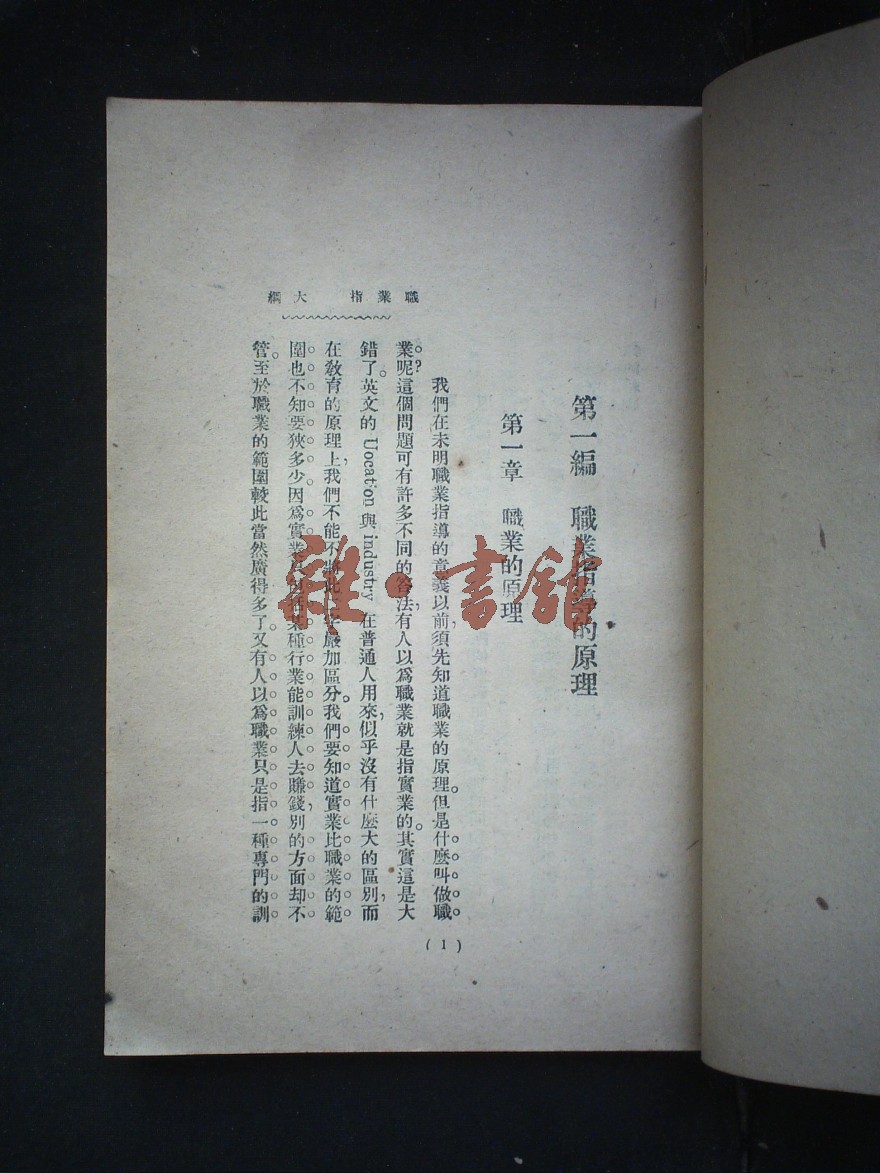 第一編 職業指導的原理
第一章 職業的原理
我們在未明職業指導的意義以前,須先知道職業的原理。但是什麼叫做職
業?呢這個問題可有許多不同的答法,有人以爲職業就是指實業的。其實這是大
錯了。英文的 Uocation 與 industry 在普通人用來,似乎沒有什麼大的區別,而
在敎育的原理上,我們不能不將此 字嚴加區分。我們要知道實業比職業的範
圍也不知要狹多少因爲實業 某種行業能訓練人去賺錢,別的方面却不
管。至於職業的範圍較此當然廣得多了。又有人以爲職業只是指一種專門的訓
職業指 大綱
(1)
雜·書館